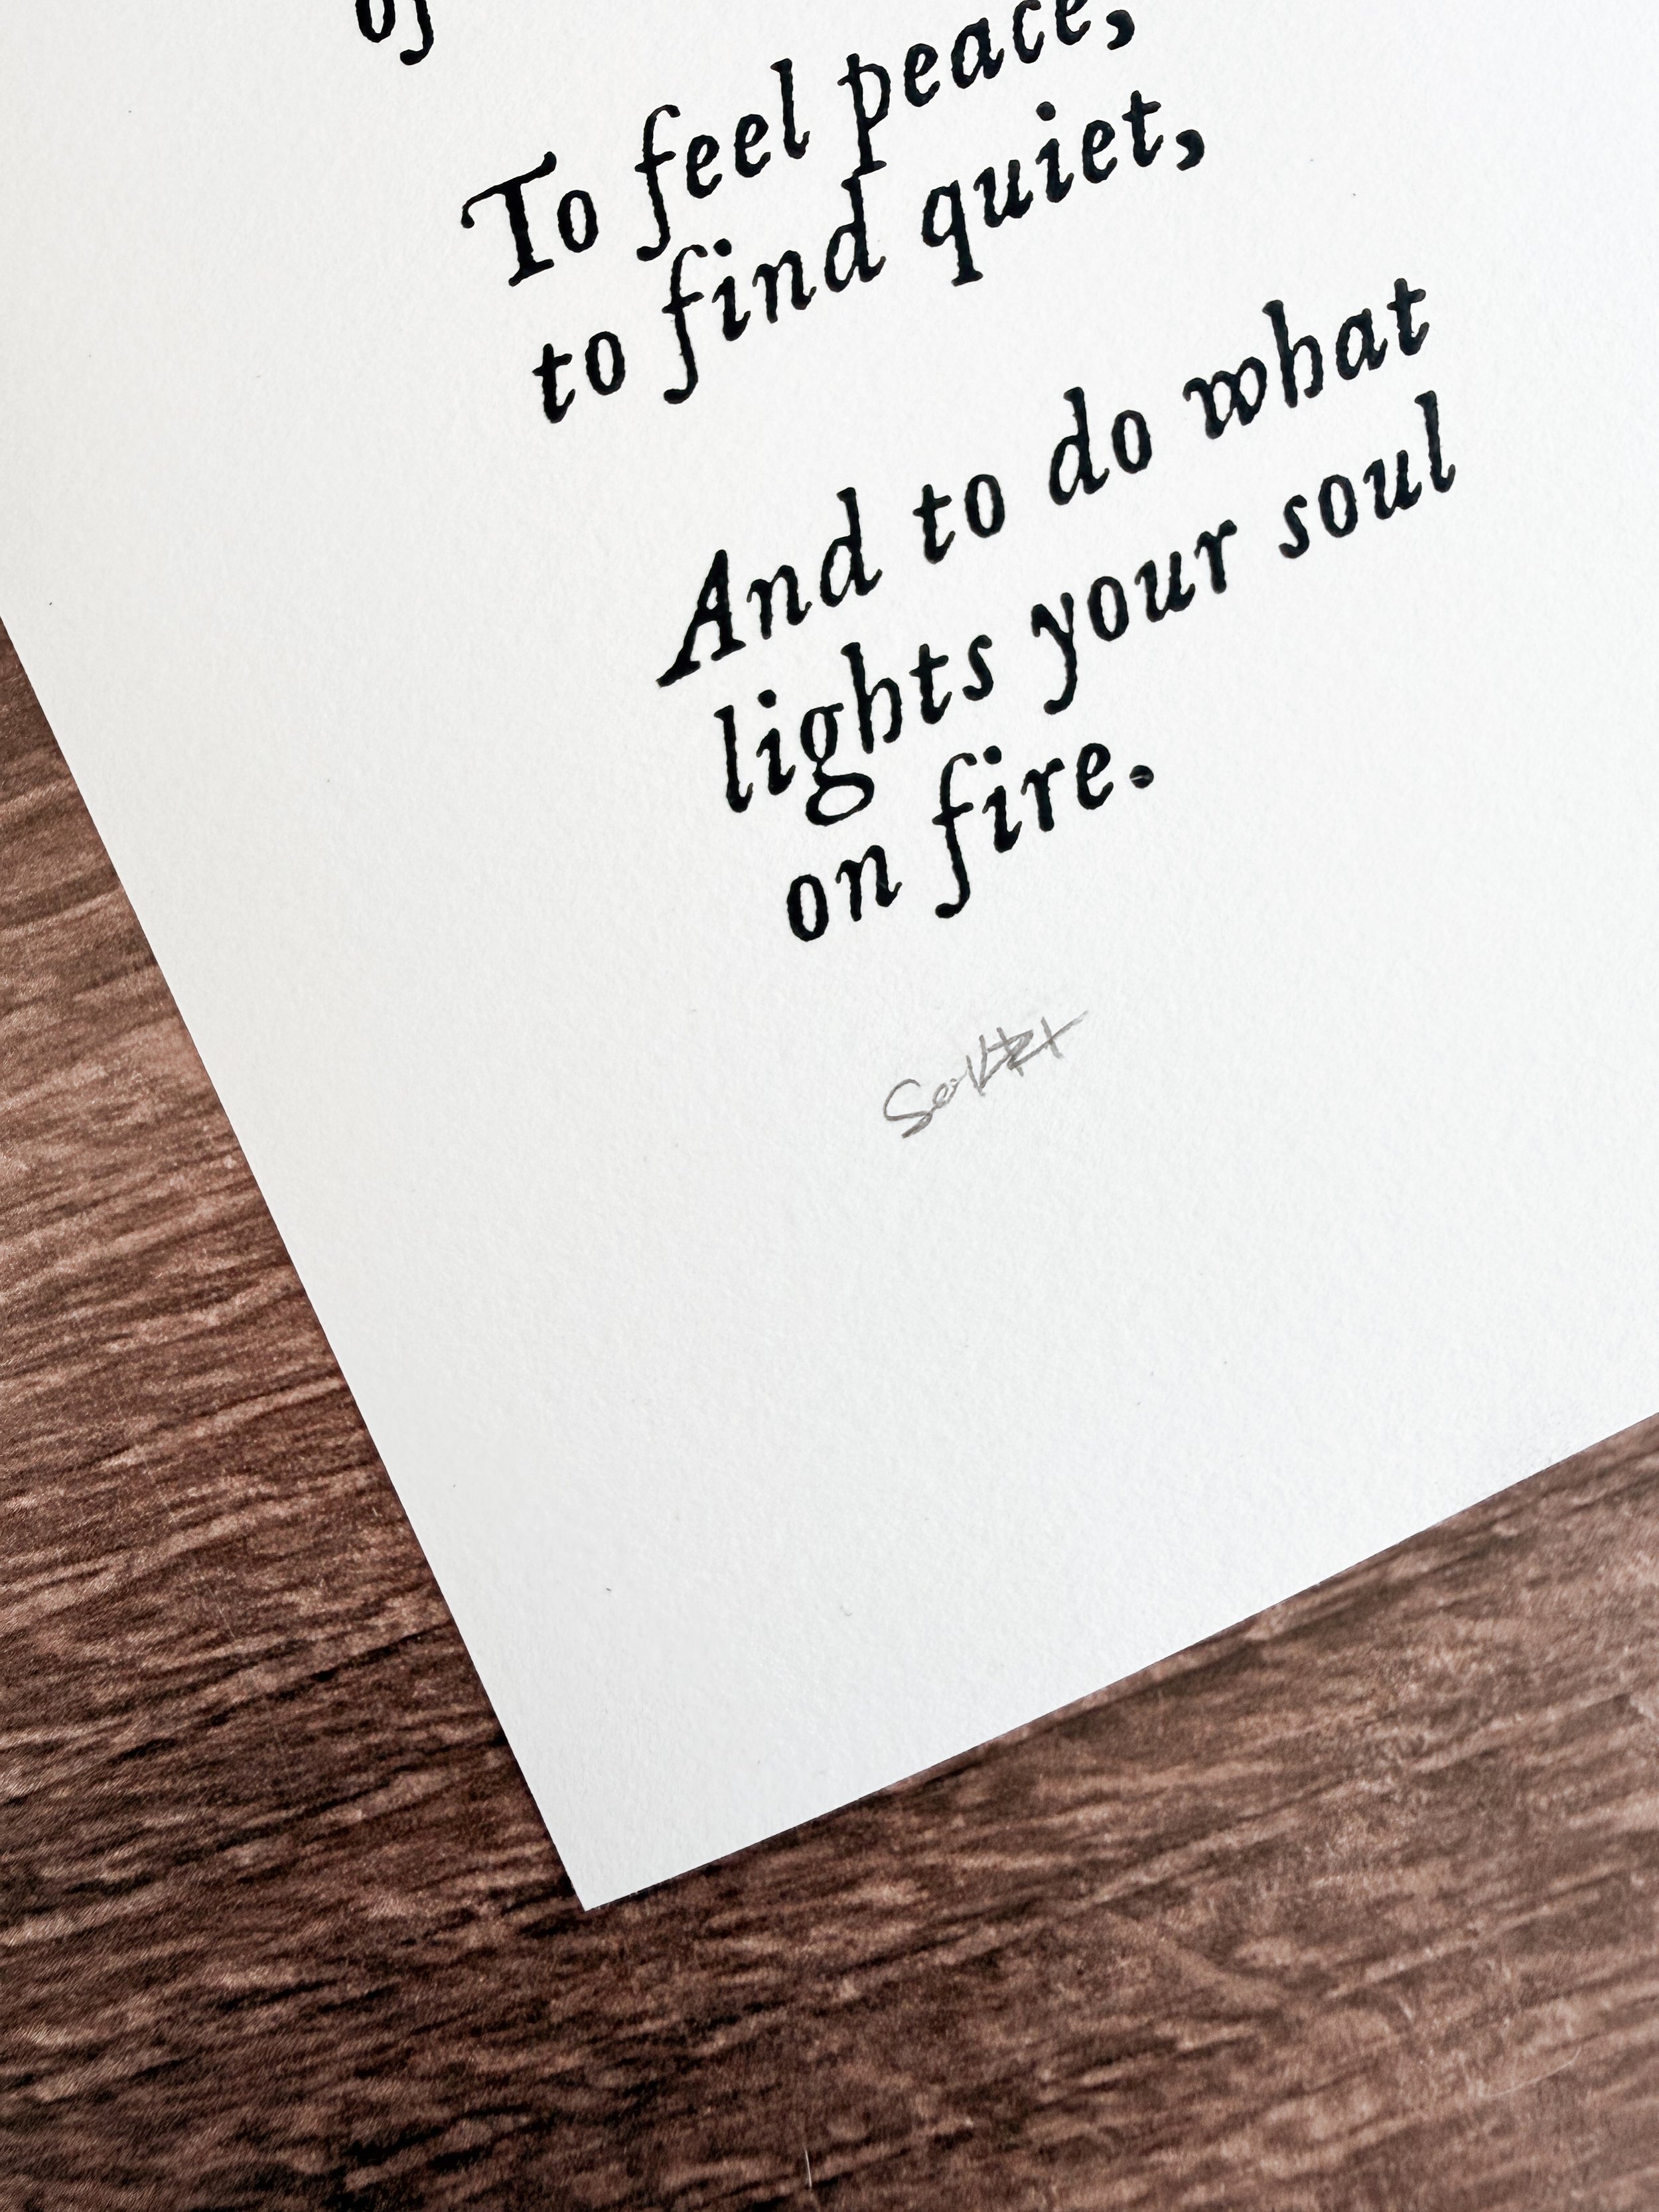 of
To feel peace,
to find quiet,
And to do what
lights your soul
on fire.